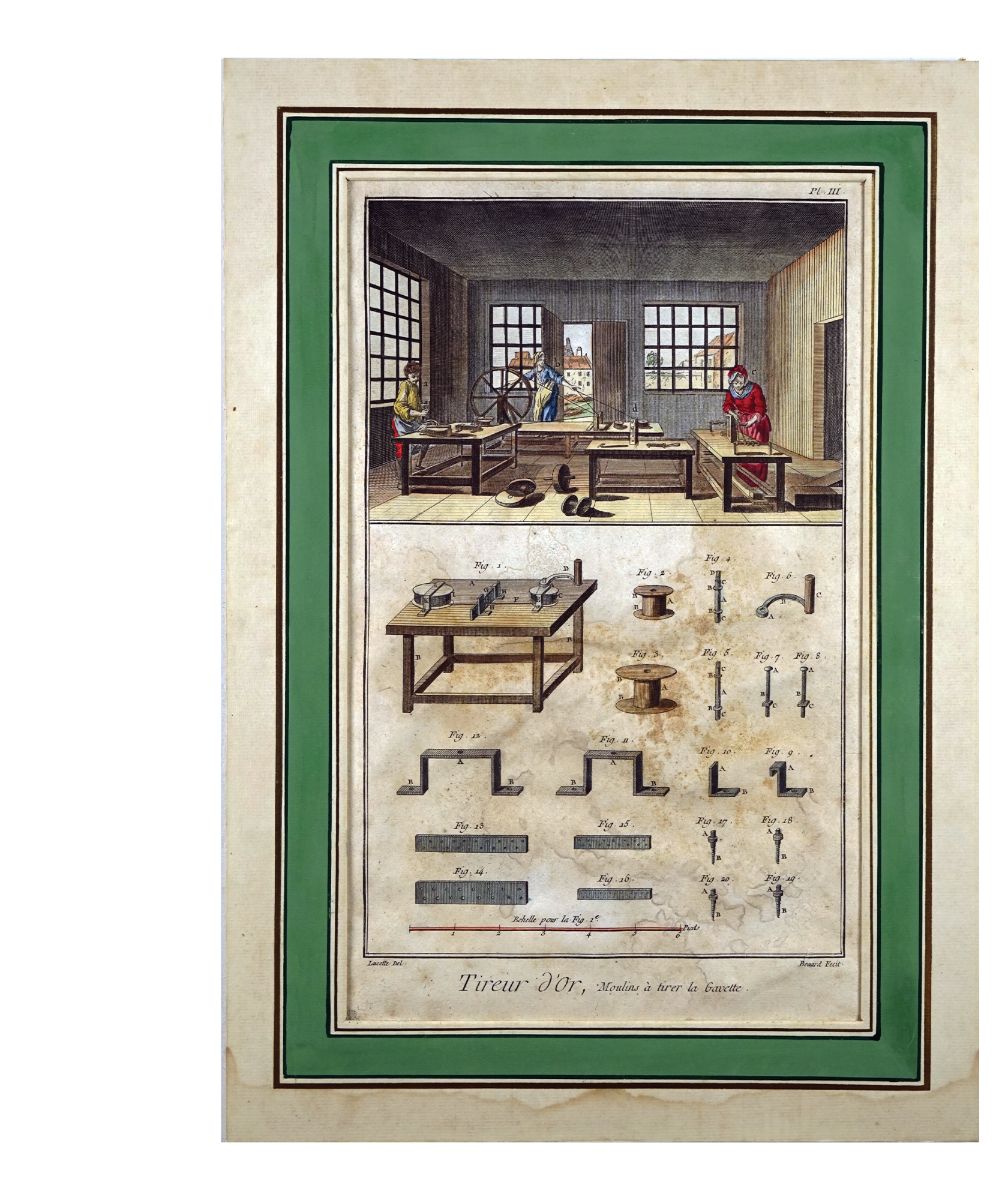 Pl. III
a
b
c
d
Fig. 1.
Fig. 2.
Fig. 4
Fig. 6.
Fig. 3.
Fig. 5
Fig. 7.
Fig. 8.
Fig. 12.
Fig. 11.
Fig. 10.
Fig. 9.
Fig. 13.
Fig. 15.
Fig. 17.
Fig. 18.
Fig. 14.
Fig. 16.
Fig. 20.
Fig. 19.
Echelle pour la Fig. 1e.
1 2 3 4 5 6 Pieds
Lucotte Del.
Benard Fecit
Tireur d'Or, Moulins à tirer la Gavette.